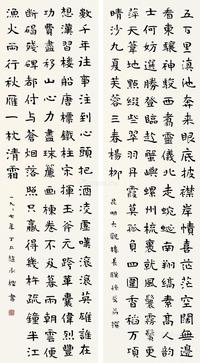 五百里滇池奔來眼底披襟岸幘喜茫茫空闊無邊
看東驤神駿西翥靈儀北走蜿蜒南翔縞素高人韻
士何妨選勝登臨趁蟹嶼螺洲梳裹就風鬟霧鬢更
蘋天葦地點綴些翠羽丹霞莫孤負四圍香稻萬頃
晴沙九夏芙蓉三春楊柳
昆明大觀樓長聯孫髯翁撰
數千年往事注到心頭把酒凌虛嘆滾滾英雄誰在
想漢習樓船唐標鐵柱宋揮玉斧元跨革囊偉烈豐
功費盡移山心力儘珠簾畫棟卷不及暮雨朝雲便
斷碣殘碑都付與蒼烟落照只贏得幾杵疏鐘半江
漁火兩行秋雁一枕清霜
一九八七年丁卯